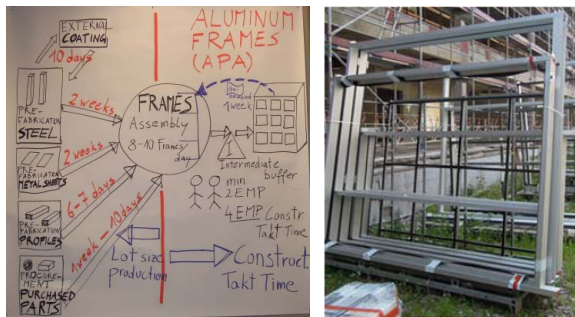 EXTERNAL
COATING
10 days
PRE-
FABRICATION
STEEL
2 weeks
PRE-
FABRICATION
METAL SHEETS
2 weeks
PRE-
FABRICATION
PROFILES
6-7 days
PROCURE-
MENT
PURCHASED
PARTS
1 week - 10 days
ALUMINUM
FRAMES
(APA)
FRAMES
Assembly
8-10 Frames/
day
1 week
Intermediate
buffer
min
2 EMP
4 EMP Constr
Takt Time
Lot size
production
Construct.
Takt Time